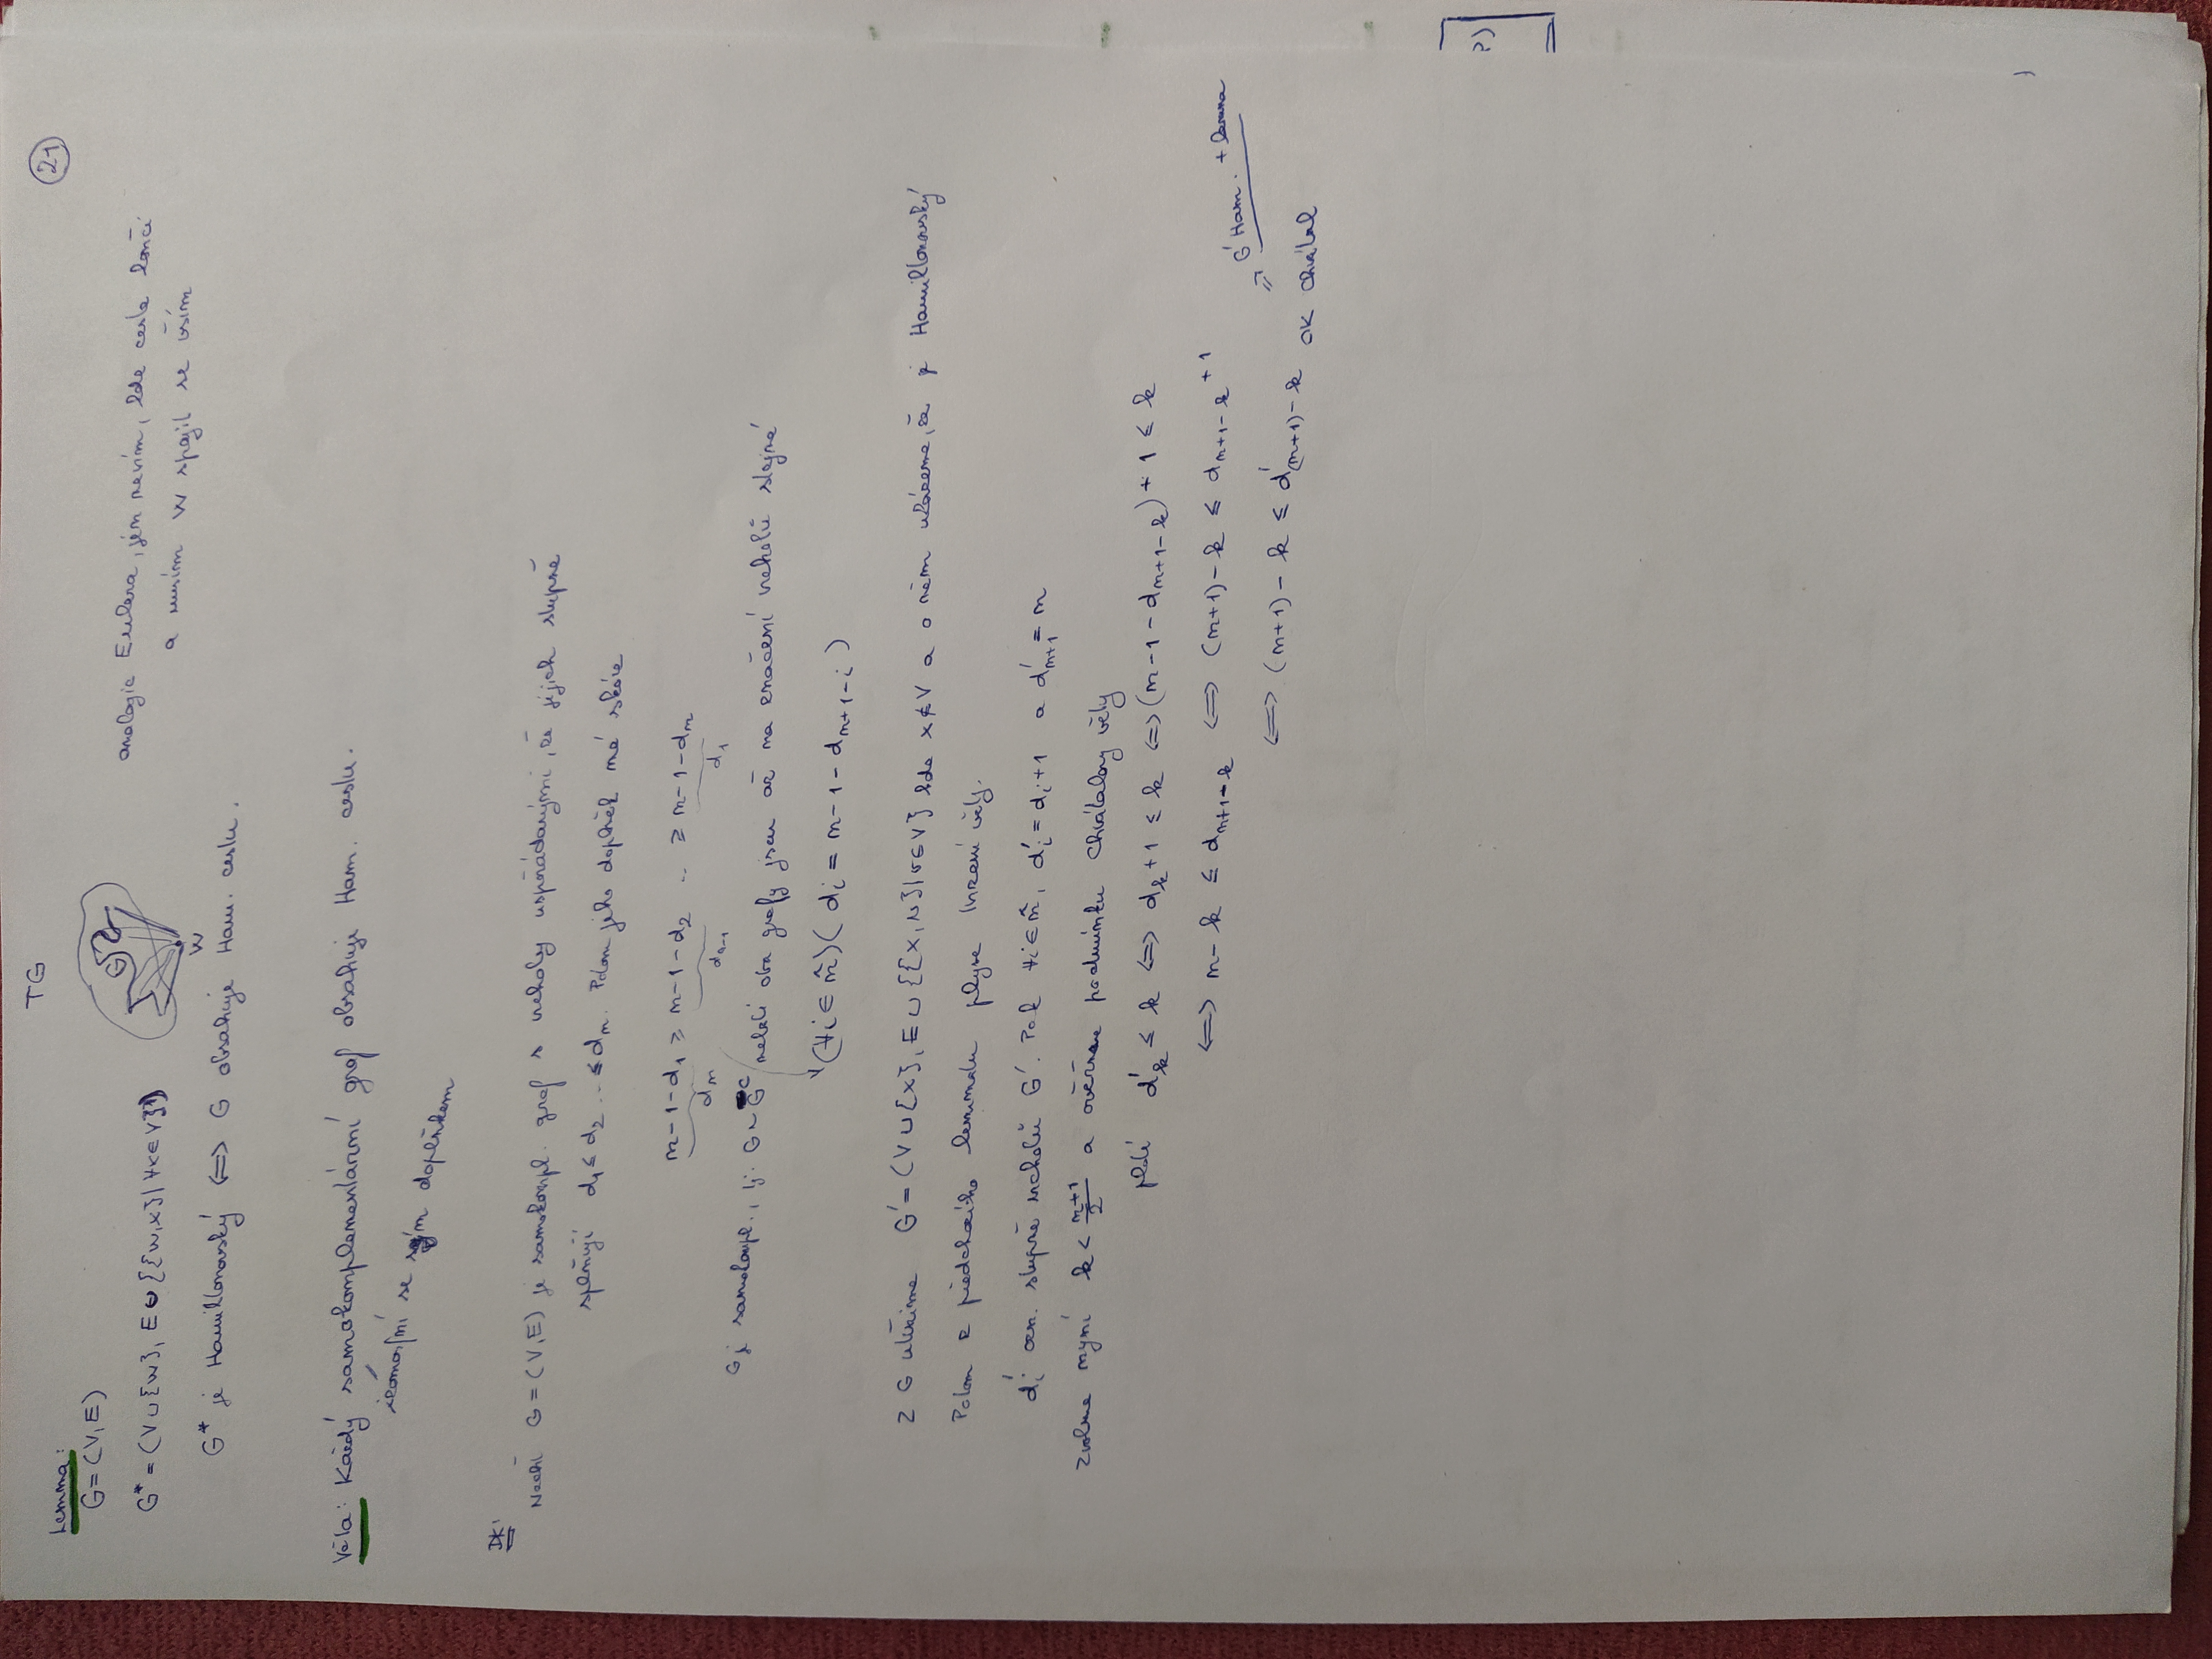 TG
21
Lemma:
G=(V,E)
G* = (V∪{w}, E∪{{w,x}|∀x∈V})
w
analogie Eulera, jen nevím, kde cesta končí
a musím w spojit se vším
G* je Hamiltonovský ⟺ G obsahuje Ham. cestu.
Věta: Každý samokomplementární graf obsahuje Ham. cestu.
izomorfní se svým doplňkem
Dk:
Nechť G=(V,E) je samokompl. graf s vrcholy uspořádanými, že jejich stupně
splňují d₁ ≤ d₂ ... ≤ dₙ. Potom jeho doplněk má skóre
n-1-d₁ ≥ n-1-d₂ .. ≥ n-1-dₙ
dₙ dₙ₋₁ d₁
G je samokompl., tj. G~Gᶜ neboli oba grafy jsou až na značení vrcholů stejné
(∀i∈n̂)(dᵢ = n-1-dₙ₊₁₋ᵢ)
Z G utvoříme G' = (V∪{x}, E∪{{x,v}|v∈V}) kde x∉V a o něm ukážeme, že je Hamiltonovský
Potom z předchozího lemmatu plyne tvrzení věty.
dᵢ' ozn. stupně vrcholů G'. Pak ∀i∈n̂, dᵢ' = dᵢ+1 a d'ₙ₊₁ = n
zvolme nyní k < (n+1)/2 a ověřme podmínku Chvátalovy věty
platí d'ₖ ≤ k ⟺ dₖ+1 ≤ k ⟺ (n-1-dₙ₊₁₋ₖ)+1 ≤ k
⟺ n-k ≤ dₙ₊₁₋ₖ ⟺ (n+1)-k ≤ dₙ₊₁₋ₖ+1
⟺ (n+1)-k ≤ d'₍ₙ₊₁₎₋ₖ ok Chvátal
⇒ G' Ham. + lemma